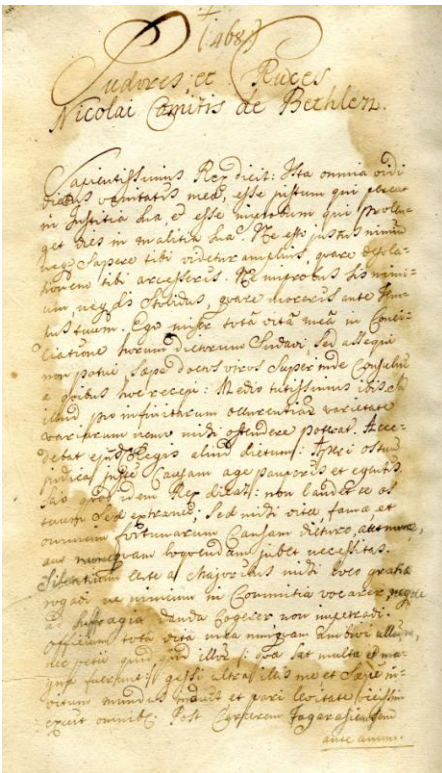 (468)
Sudores et Cruces
Nicolai Comitis de Bethlen.
Sapientissimus Rex dicit: Ista omnia vidi
diebus vanitatis meæ, esse justum qui pereat
in Justitia sua, et esse improbum qui prolon=
get dies in malitia sua. Ne esto justus nimium
neq sapere tibi videtur amplius, quare desola=
tionem tibi arcesseris. Ne improbus sis nimi=
um, neq sis stolidus, quare moraris ante tem=
tuum. Ego miser totâ vitâ meâ in Conci=
liatione horum dictorum sudavi, sed assequi
non potui, sæpe doctos viros super inde consului
a quibus hoc recepi: Medio tutissimus ibis, sed
illud pro infinitarum occurrentiar varietate
variarum nemo mihi ostendere poterat. Acce=
debat ejusd Regis aliud dictum: Aperi os tuum
judica juste causam age pauperis et egentis.
idem Rex dicat: non laudet te os
tuum sed extraneus; sed mihi vitæ, famæ et
omnium fortunarum causam dicturo, aut nunc,
aut nunquam loquendum jubet necessitas.
Silentium a Majoribus mihi
rogavi ne nimium in Commitia vocarer
ad suffragia danda cogerer non impetravi.
Officium totâ vitâ meâ nunquam ambivi ullum,
nec petii quid quid illor (: qua sat multa et ma=
gna fuerunt :) gessi ultra illas me et sæpe in=
vitum mundus induit et pari levitate
exuit omnib. Post Carcerem Fogarasiensem
ante annum